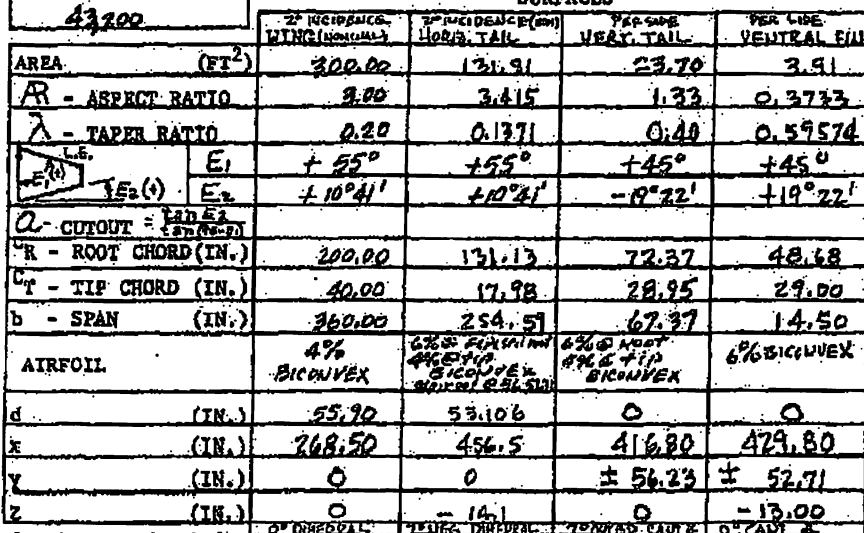 43,200
2° INCIDENCE WING (NOMINAL) 2° INCIDENCE HORIZ. TAIL PER SIDE VERT. TAIL PER SIDE VENTRAL FIN
AREA (FT²) 300.00 131.91 23.70 3.91
AR - ASPECT RATIO 3.00 3.415 1.33 0.3733
λ - TAPER RATIO 0.20 0.1371 0.40 0.59574
L.E.
E₁ (+) E₁ +55° +55° +45° +45°
E₂ (+) E₂ +10°41' +10°41' -19°22' +19°22'
a - CUTOUT = tan E₂
CR - ROOT CHORD (IN.) 200.00 131.13 72.37 48.68
CT - TIP CHORD (IN.) 40.00 17.98 28.95 29.00
b - SPAN (IN.) 360.00 254.59 67.37 14.50
AIRFOIL 4% BICONVEX 6% @ 4% @ tip BICONVEX 6% @ ROOT @ tip BICONVEX 6% BICONVEX
d (IN.) 55.90 53.106 0 0
x (IN.) 268.50 456.5 416.80 429.80
y (IN.) 0 0 ± 56.23 ± 52.71
z (IN.) 0 - 14.1 0 -13.00
0° DIHEDRAL DIHEDRAL CANT & 0° CANT &